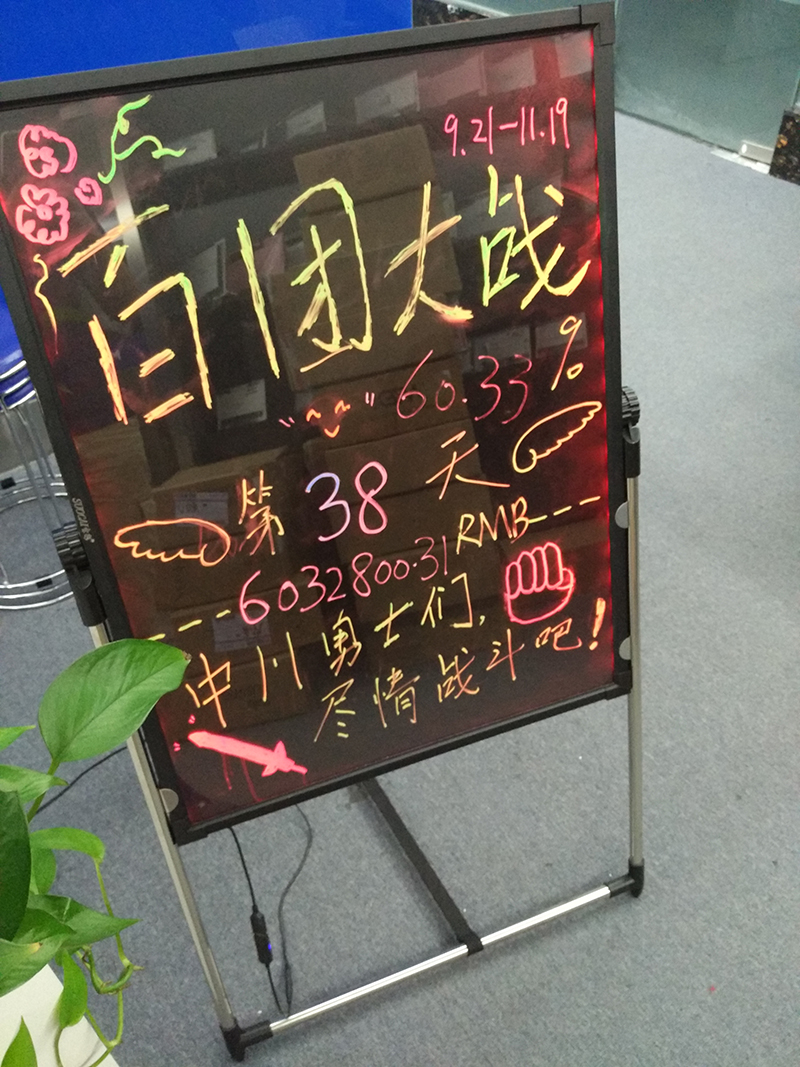 9.21-11.19
百团大战
60.33%
第38天
---6032800.31RMB---
中川勇士们,
尽情战斗吧!